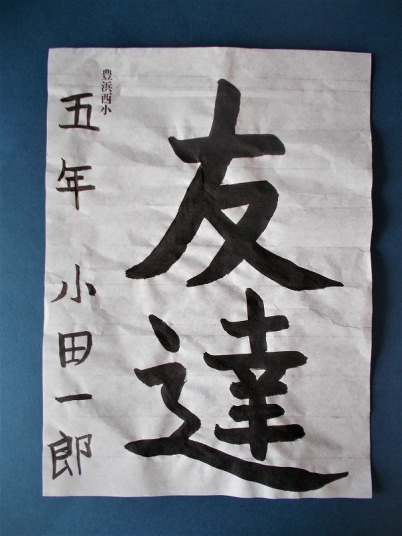 友達
豊浜西小
五年 小田一郎